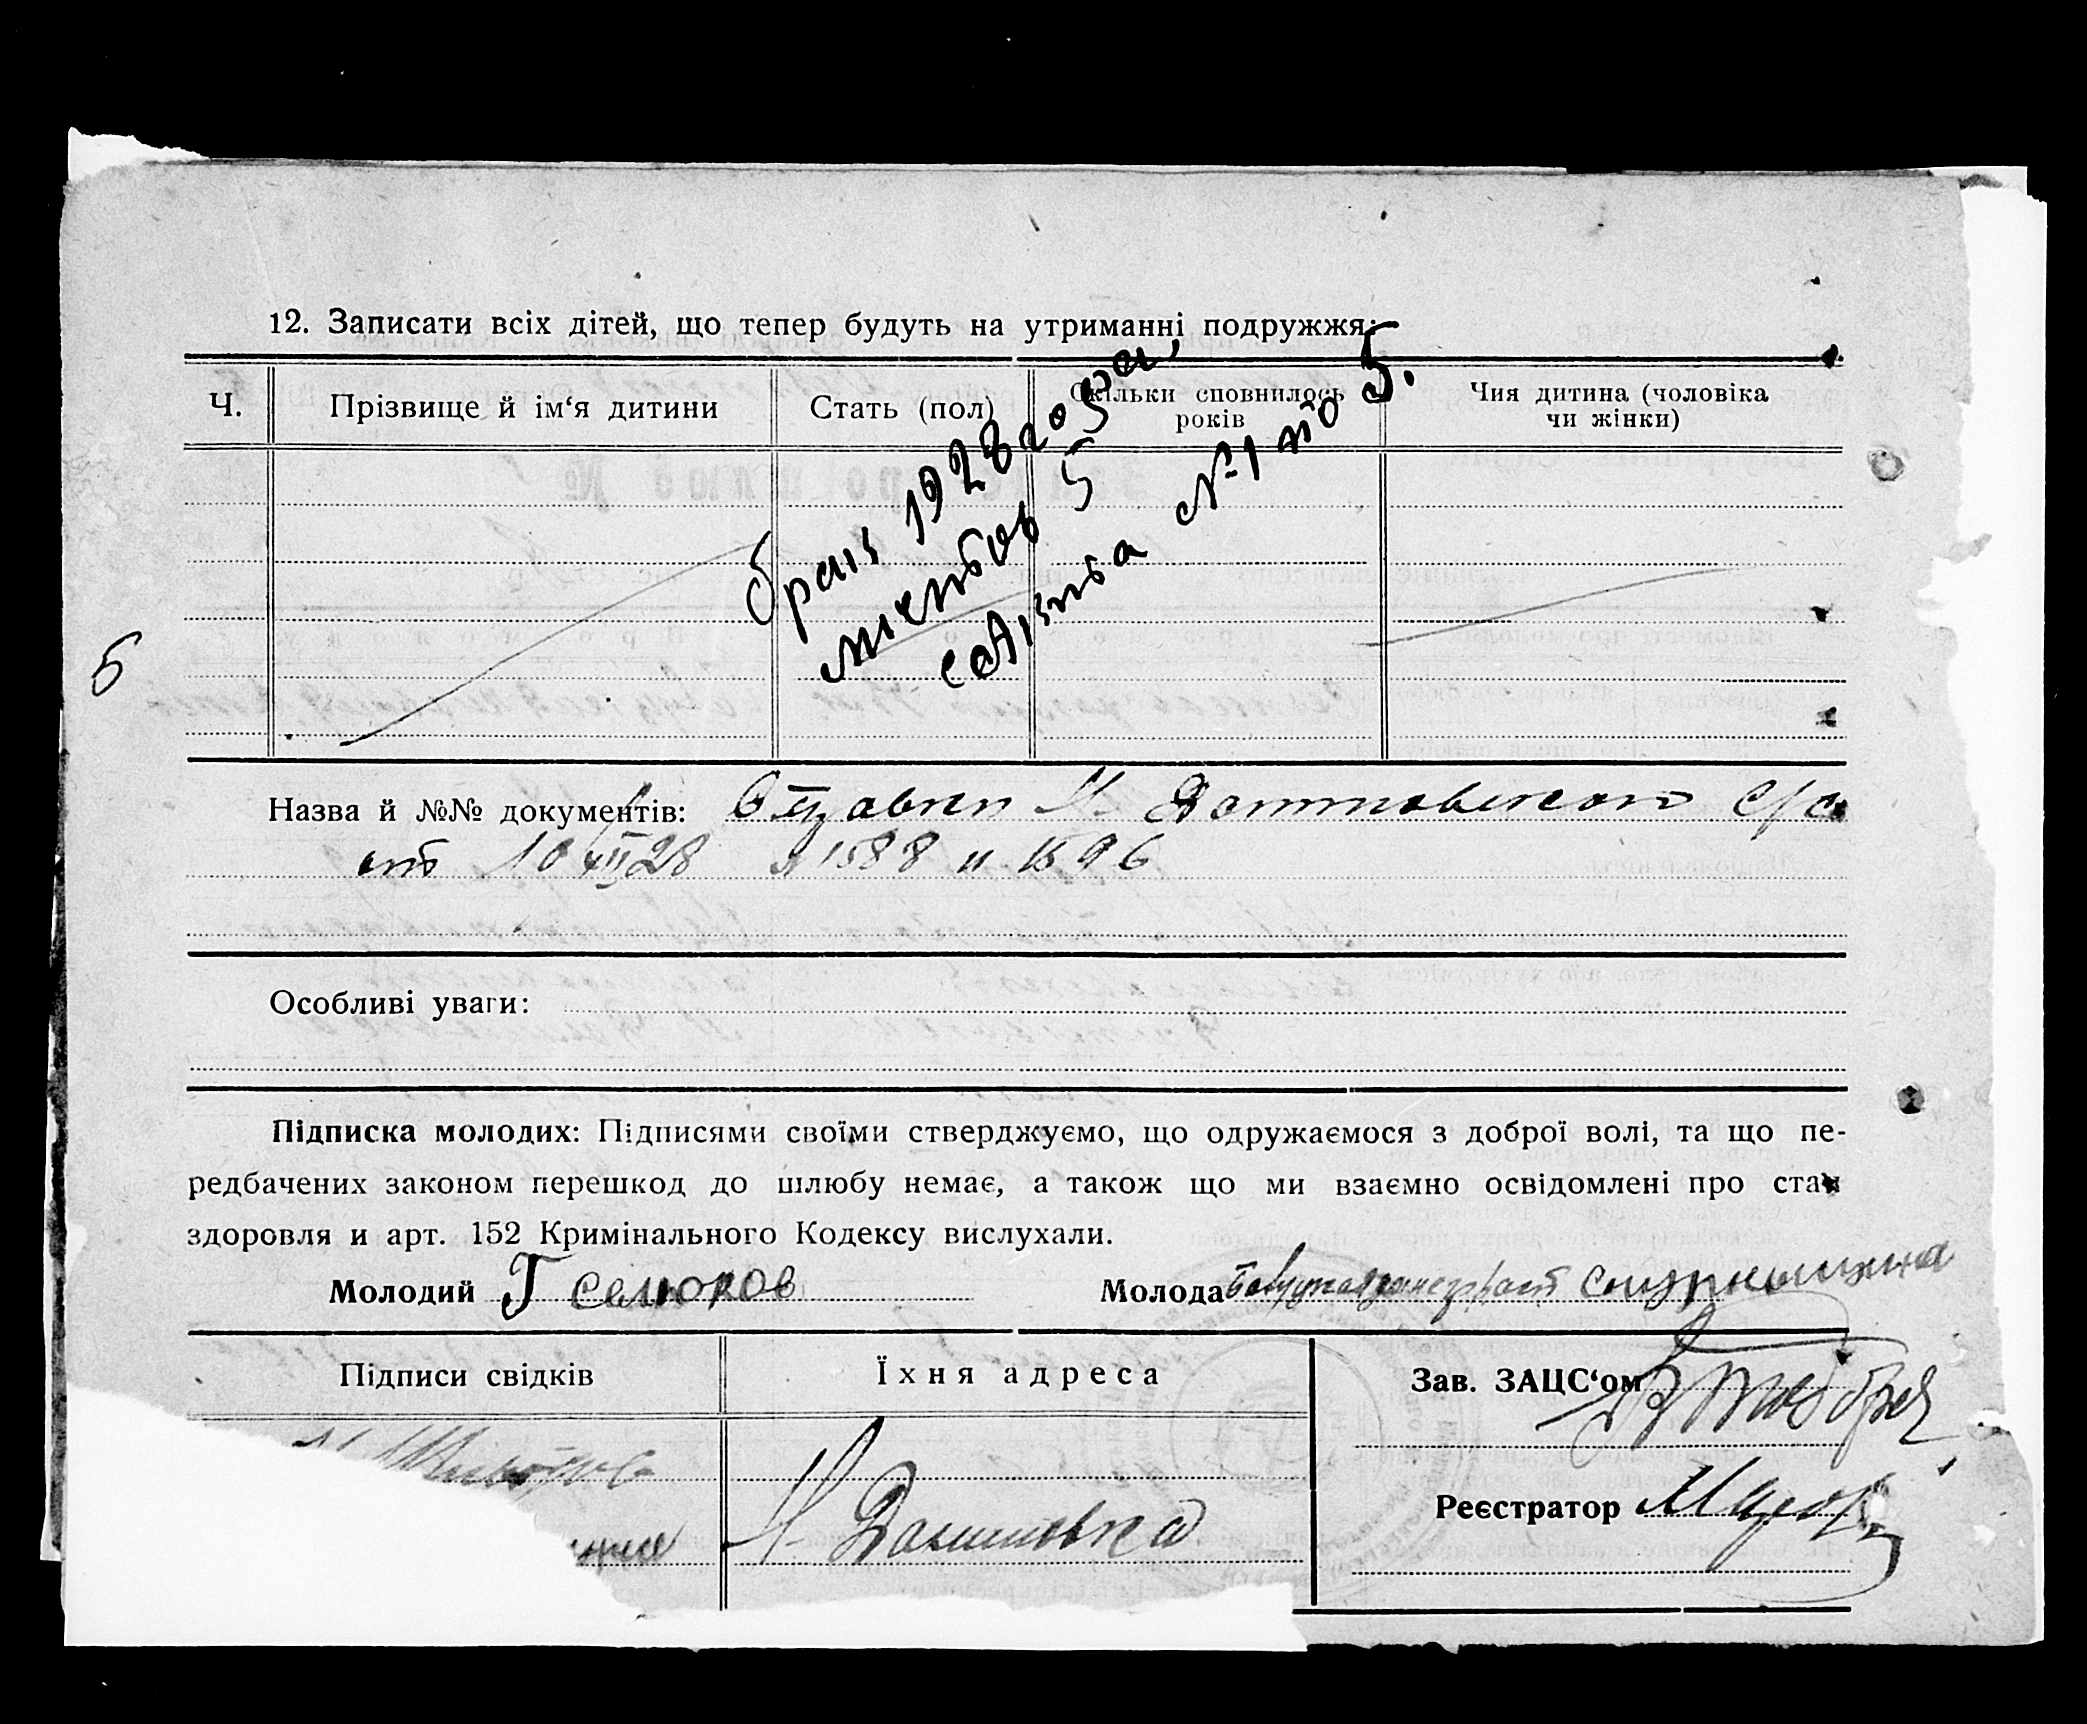 12. Записати всіх дітей, що тепер будуть на утриманні подружжя:
Ч.
Прізвище й ім‘я дитини
Стать (пол)
Скільки сповнилось
років
Чия дитина (чоловіка
чи жінки)
брак 1928 года,
листов 5
с листа №1 по 5.
5
Назва й №№ документів: Справки Н. Даттовского с/с
от 10/XII 28 № 1588 и 1596
Особливі уваги:
Підписка молодих: Підписями своїми стверджуємо, що одружаємося з доброї волі, та що пе-
редбачених законом перешкод до шлюбу немає, а також що ми взаємно освідомлені про стан
здоровля и арт. 152 Кримінального Кодексу вислухали.
Молодий Г Селюков
Молода
Підписи свідків
Їхня адреса
Зав. ЗАЦС‘ом
Реєстратор